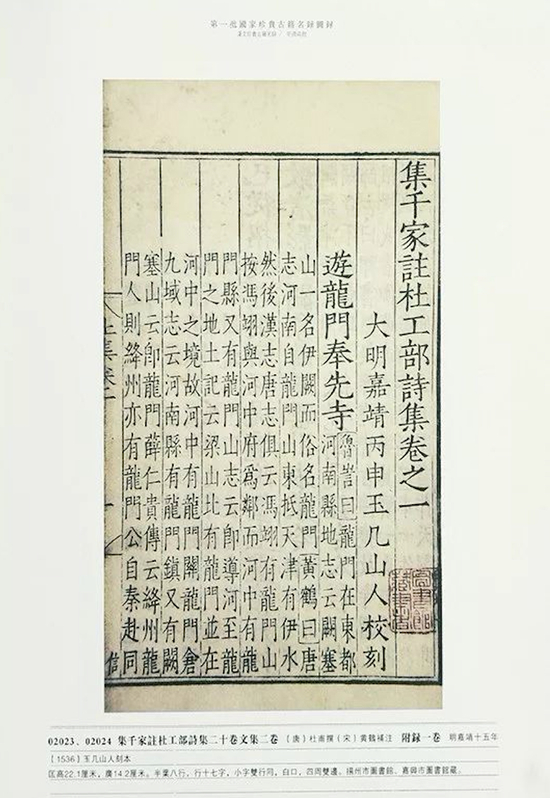 第一批國家珍貴古籍名錄圖錄
集千家註杜工部詩集卷之一
大明嘉靖丙申玉几山人校刻
遊龍門奉先寺
魯訔曰龍門在東都
河南縣地志云闕塞
山一名伊闕而俗名龍門黃鶴曰唐
志河南自龍門山東抵天津有伊水
然後漢志唐志俱云馮翊有龍門山
按馮翊與河中府爲鄰而河中有龍
門縣又有龍門山志云卽導河至龍
門之地土記云梁山北有龍門並在
河中之境故河中有龍門關龍門倉
九域志云河南縣有龍門鎮又有闕
塞山云卽龍門薛仁貴傳云絳州龍
門人則絳州亦有龍門公自秦赴同
02023、02024 集千家註杜工部詩集二十卷文集二卷 （唐）杜甫撰（宋）黃鶴補注 附錄一卷 明嘉靖十五年
［1536］玉几山人刻本
匡高22.1厘米，廣14.2厘米。半葉八行，行十七字，小字雙行同，白口，四周雙邊。揚州市圖書館、嘉興市圖書館藏。